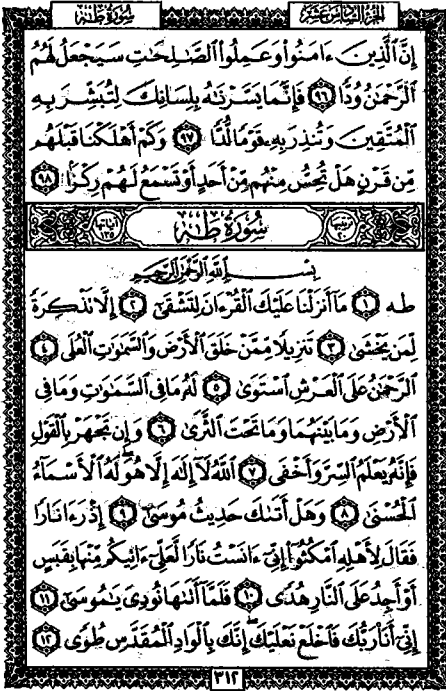 سُورَةُ طه
الجُزْءُ السَّادِسَ عَشَرَ
إِنَّ ٱلَّذِينَ ءَامَنُوا۟ وَعَمِلُوا۟ ٱلصَّٰلِحَٰتِ سَيَجْعَلُ لَهُمُ
ٱلرَّحْمَٰنُ وُدًّا ٩٦ فَإِنَّمَا يَسَّرْنَٰهُ بِلِسَانِكَ لِتُبَشِّرَ بِهِ
ٱلْمُتَّقِينَ وَتُنذِرَ بِهِۦ قَوْمًا لُّدًّا ٩٧ وَكَمْ أَهْلَكْنَا قَبْلَهُم
مِّن قَرْنٍ هَلْ تُحِسُّ مِنْهُم مِّنْ أَحَدٍ أَوْ تَسْمَعُ لَهُمْ رِكْزًۢا ٩٨
سُورَةُ طه
بِسْمِ ٱللَّهِ ٱلرَّحْمَٰنِ ٱلرَّحِيمِ
طه ١ مَآ أَنزَلْنَا عَلَيْكَ ٱلْقُرْءَانَ لِتَشْقَىٰٓ ٢ إِلَّا تَذْكِرَةً
لِّمَن يَخْشَىٰ ٣ تَنزِيلًا مِّمَّنْ خَلَقَ ٱلْأَرْضَ وَٱلسَّمَٰوَٰتِ ٱلْعُلَى ٤
ٱلرَّحْمَٰنُ عَلَى ٱلْعَرْشِ ٱسْتَوَىٰ ٥ لَهُۥ مَا فِى ٱلسَّمَٰوَٰتِ وَمَا فِى
ٱلْأَرْضِ وَمَا بَيْنَهُمَا وَمَا تَحْتَ ٱلثَّرَىٰ ٦ وَإِن تَجْهَرْ بِٱلْقَوْلِ
فَإِنَّهُۥ يَعْلَمُ ٱلسِّرَّ وَأَخْفَى ٧ ٱللَّهُ لَآ إِلَٰهَ إِلَّا هُوَ لَهُ ٱلْأَسْمَآءُ
ٱلْحُسْنَىٰ ٨ وَهَلْ أَتَىٰكَ حَدِيثُ مُوسَىٰٓ ٩ إِذْ رَءَا نَارًا
فَقَالَ لِأَهْلِهِ ٱمْكُثُوٓا۟ إِنِّىٓ ءَانَسْتُ نَارًا لَّعَلِّىٓ ءَاتِيكُم مِّنْهَا بِقَبَسٍ
أَوْ أَجِدُ عَلَى ٱلنَّارِ هُدًى ١٠ فَلَمَّآ أَتَىٰهَا نُودِىَ يَٰمُوسَىٰٓ ١١
إِنِّىٓ أَنَا۠ رَبُّكَ فَٱخْلَعْ نَعْلَيْكَ إِنَّكَ بِٱلْوَادِ ٱلْمُقَدَّسِ طُوًى ١٢
٣١٢